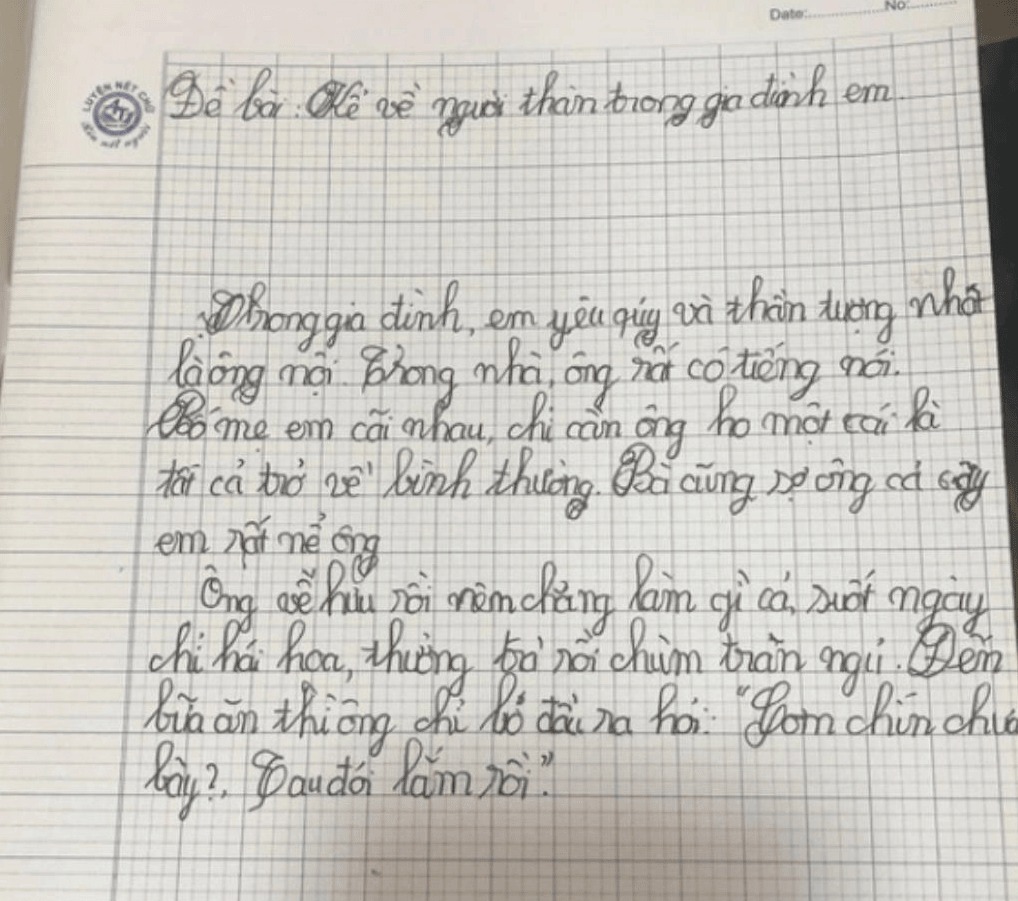 Date:.............. No:.............
LUYỆN NÉT CHỮ
Rèn nết người
Đề bài: Kể về người thân trong gia đình em.
Trong gia đình, em yêu quý và thần tượng nhất
là ông nội. Trong nhà, ông rất có tiếng nói.
Bố mẹ em cãi nhau, chỉ cần ông ho một cái là
tất cả trở về bình thường. Bà cũng sợ ông cả cây
em rất nể ông
Ông về hưu rồi nên chẳng làm gì cả, suốt ngày
chỉ hái hoa, thưởng trà rồi chùm trăn ngủ. Đến
bữa ăn thì ông chỉ ló đầu ra hỏi: "Cơm chín chưa
bay?, Tau đói lắm rồi."